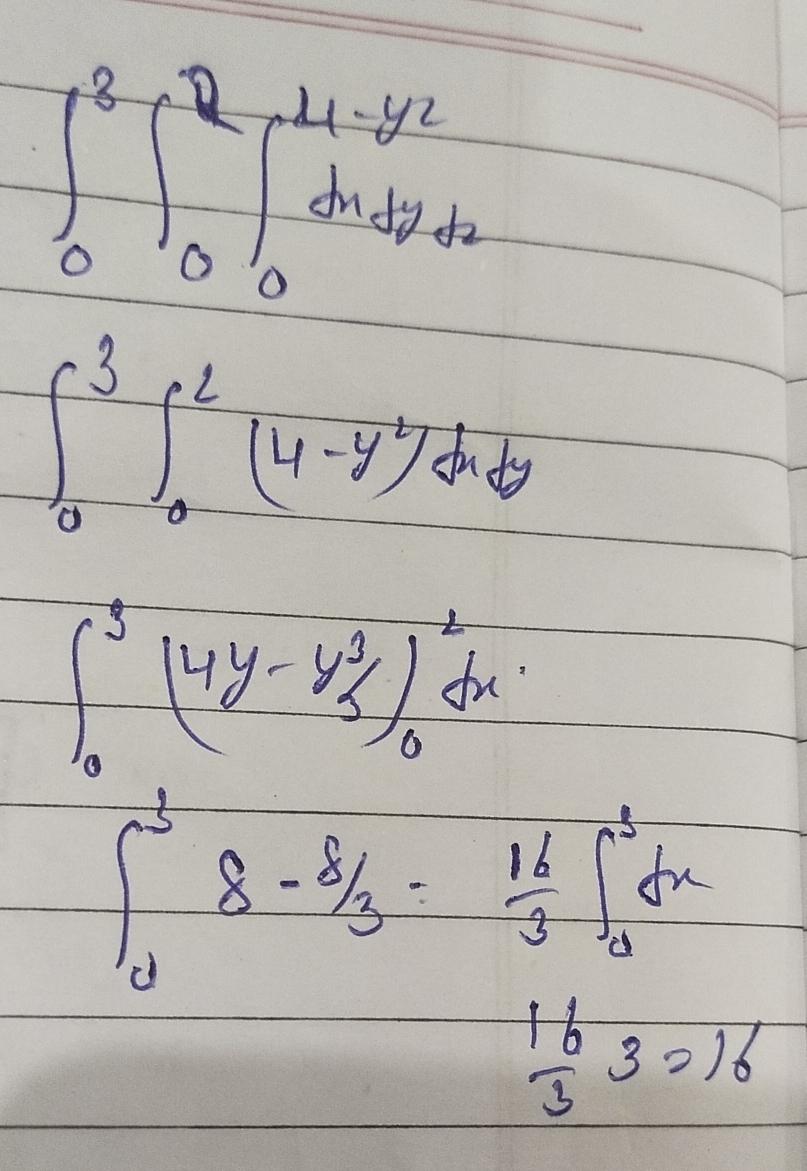 ∫₀³ ∫₀² ∫₀^(4-y2) dx dy dz
∫₀³ ∫₀² (4-y²) dx dy
∫₀³ (4y - y³/3)₀² dx
∫₀³ 8 - 8/3 = 16/3 ∫₀³ dx
16/3 3 = 16